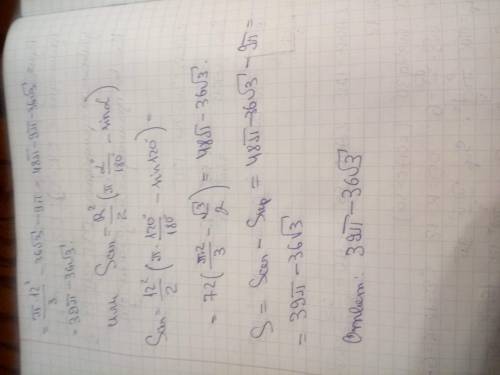 = π·12²/3 - 36√3 - 9π = 48π - 9π - 36√3 =
= 39π - 36√3.
или Sсег = R²/2 (π α°/180° - sinα)
Sсег = 12²/2 (π · 120°/180° - sin120°) =
= 72(π·2/3 - √3/2) = 48π - 36√3.
S = Sсег - Sкр = 48π - 36√3 - 9π =
= 39π - 36√3
Ответ: 39π - 36√3